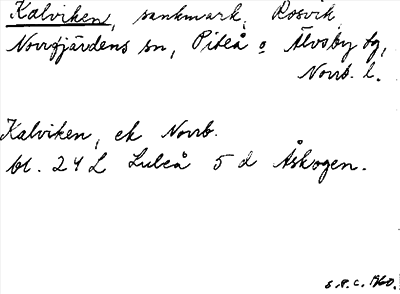 Kalviken, sankmark, Rosvik
Norrfjärdens sn, Piteå o Älvsby tg,
Norrb. l.
Kalviken, ek Norrb.
bl. 24 L Luleå 5 d Åskogen.
S.P.C. 1960.